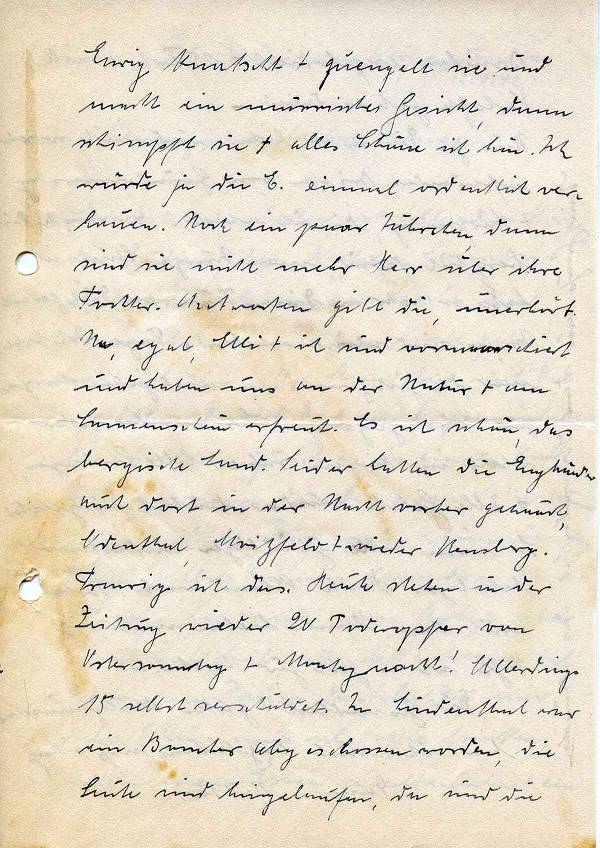 Ewig knatscht + quengelt sie und
macht ein mürrisches Gesicht, dann
schimpft sie + alles Schöne ist hin. Ich
würde ja die E. einmal ordentlich ver-
hauen. Noch ein paar Jährchen, dann
sind sie nicht mehr Herr über ihre
Tochter. Antworten gibt die, unerhört.
Na, egal, Elli + ich sind vormarschiert
und haben uns an der Natur + am
Sonnenschein erfreut. Es ist schön, das
bergische Land. Leider hatten die Engländer
auch dort in der Nacht vorher gehaust,
Odenthal, Moitzfeld + wieder Bensberg.
Traurig ist das. Heute stehen in der
Zeitung wieder 20 Todesopfer von
Ostersonntag + Montag nacht! Allerdings
15 selbst verschuldet. In Lindenthal war
ein Bomber abgeschossen worden, die
Leute sind hingelaufen, da sind die